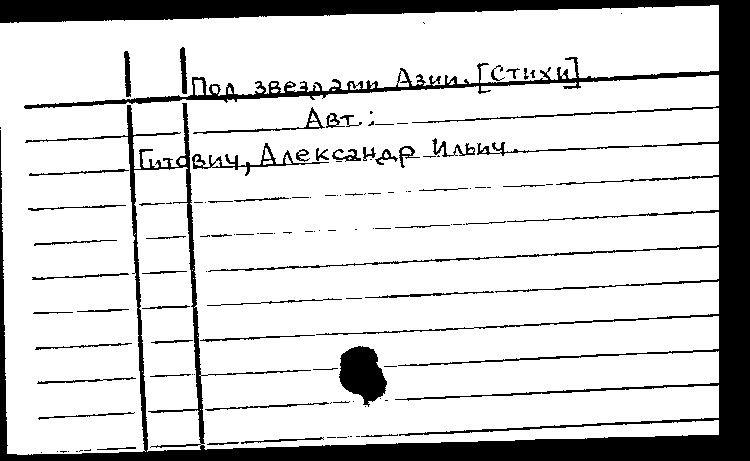 Под звездами Азии. [Стихи].
Авт.:
Гитович, Александр Ильич.